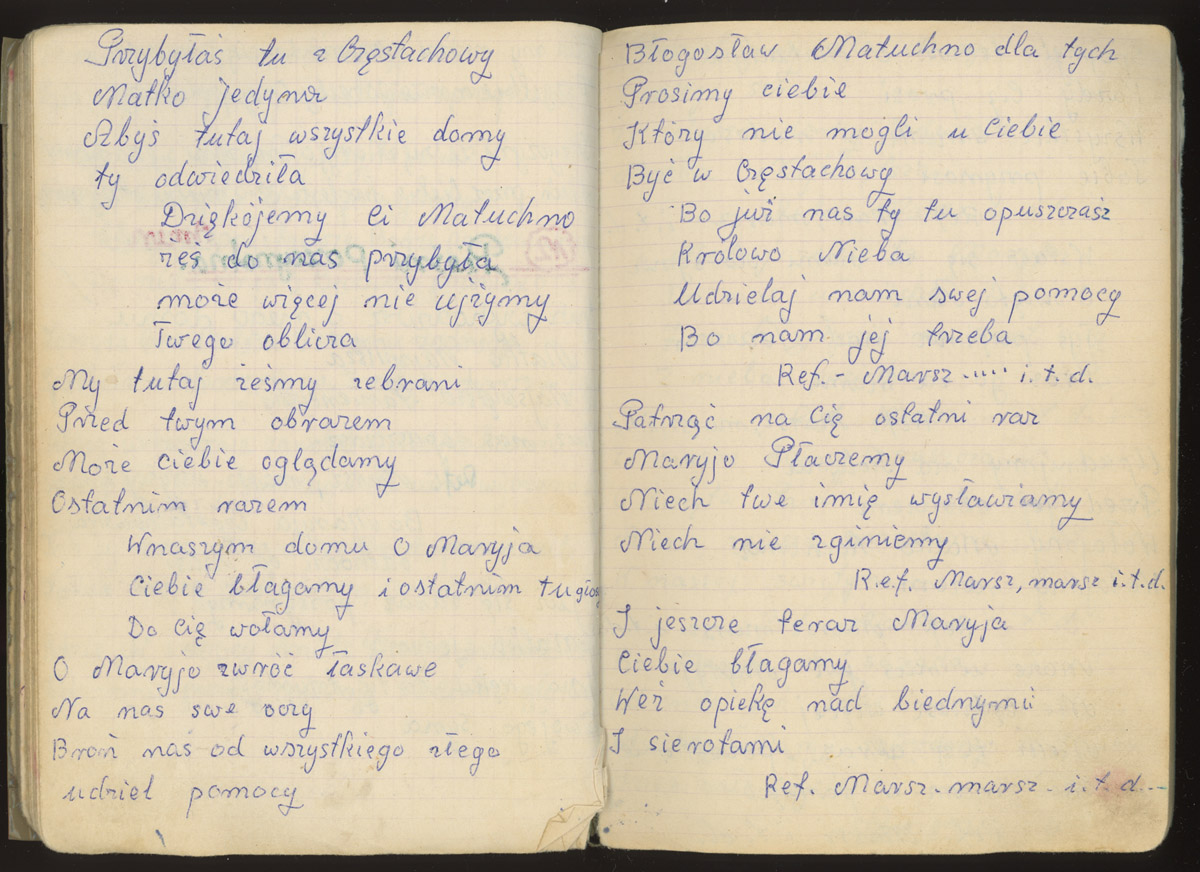 Przybyłaś tu z Częstachowy
Matko Jedyna
Abyś tutaj wszystkie domy
ty odwiedziła
Dziękójemy Ci Matuchno
żeś do nas przybyła
może więcej nie ujżymy
Twego oblicza
My tutaj żeśmy zebrani
Przed twym obrazem
Może ciebie oglądamy
Ostatnim razem
Wnaszym domu O Maryja
Ciebie błagamy i ostatnim tu głos
Do Cię wołamy
O Maryjo zwróć łaskawe
Na nas swe oczy
Broń nas od wszystkiego złego
udziel pomocy
Błogosław Matuchno dla tych
Prosimy ciebie
Który nie mogli u Ciebie
Być w Częstachowy
Bo już nas ty tu opuszczasz
Królowo Nieba
Udzielaj nam swej pomocy
Bo nam jej trzeba
Ref. - Marsz ..... i.t.d.
Patrząć na Cię ostatni raz
Maryjo Płaczemy
Niech twe imię wysławiamy
Niech nie zginiemy
Ref. Marsz, marsz i.t.d.
I jeszcze teraz Maryja
Ciebie błagamy
Weź opiekę nad biednymi
I sierotami
Ref. Marsz. marsz. i.t.d.--